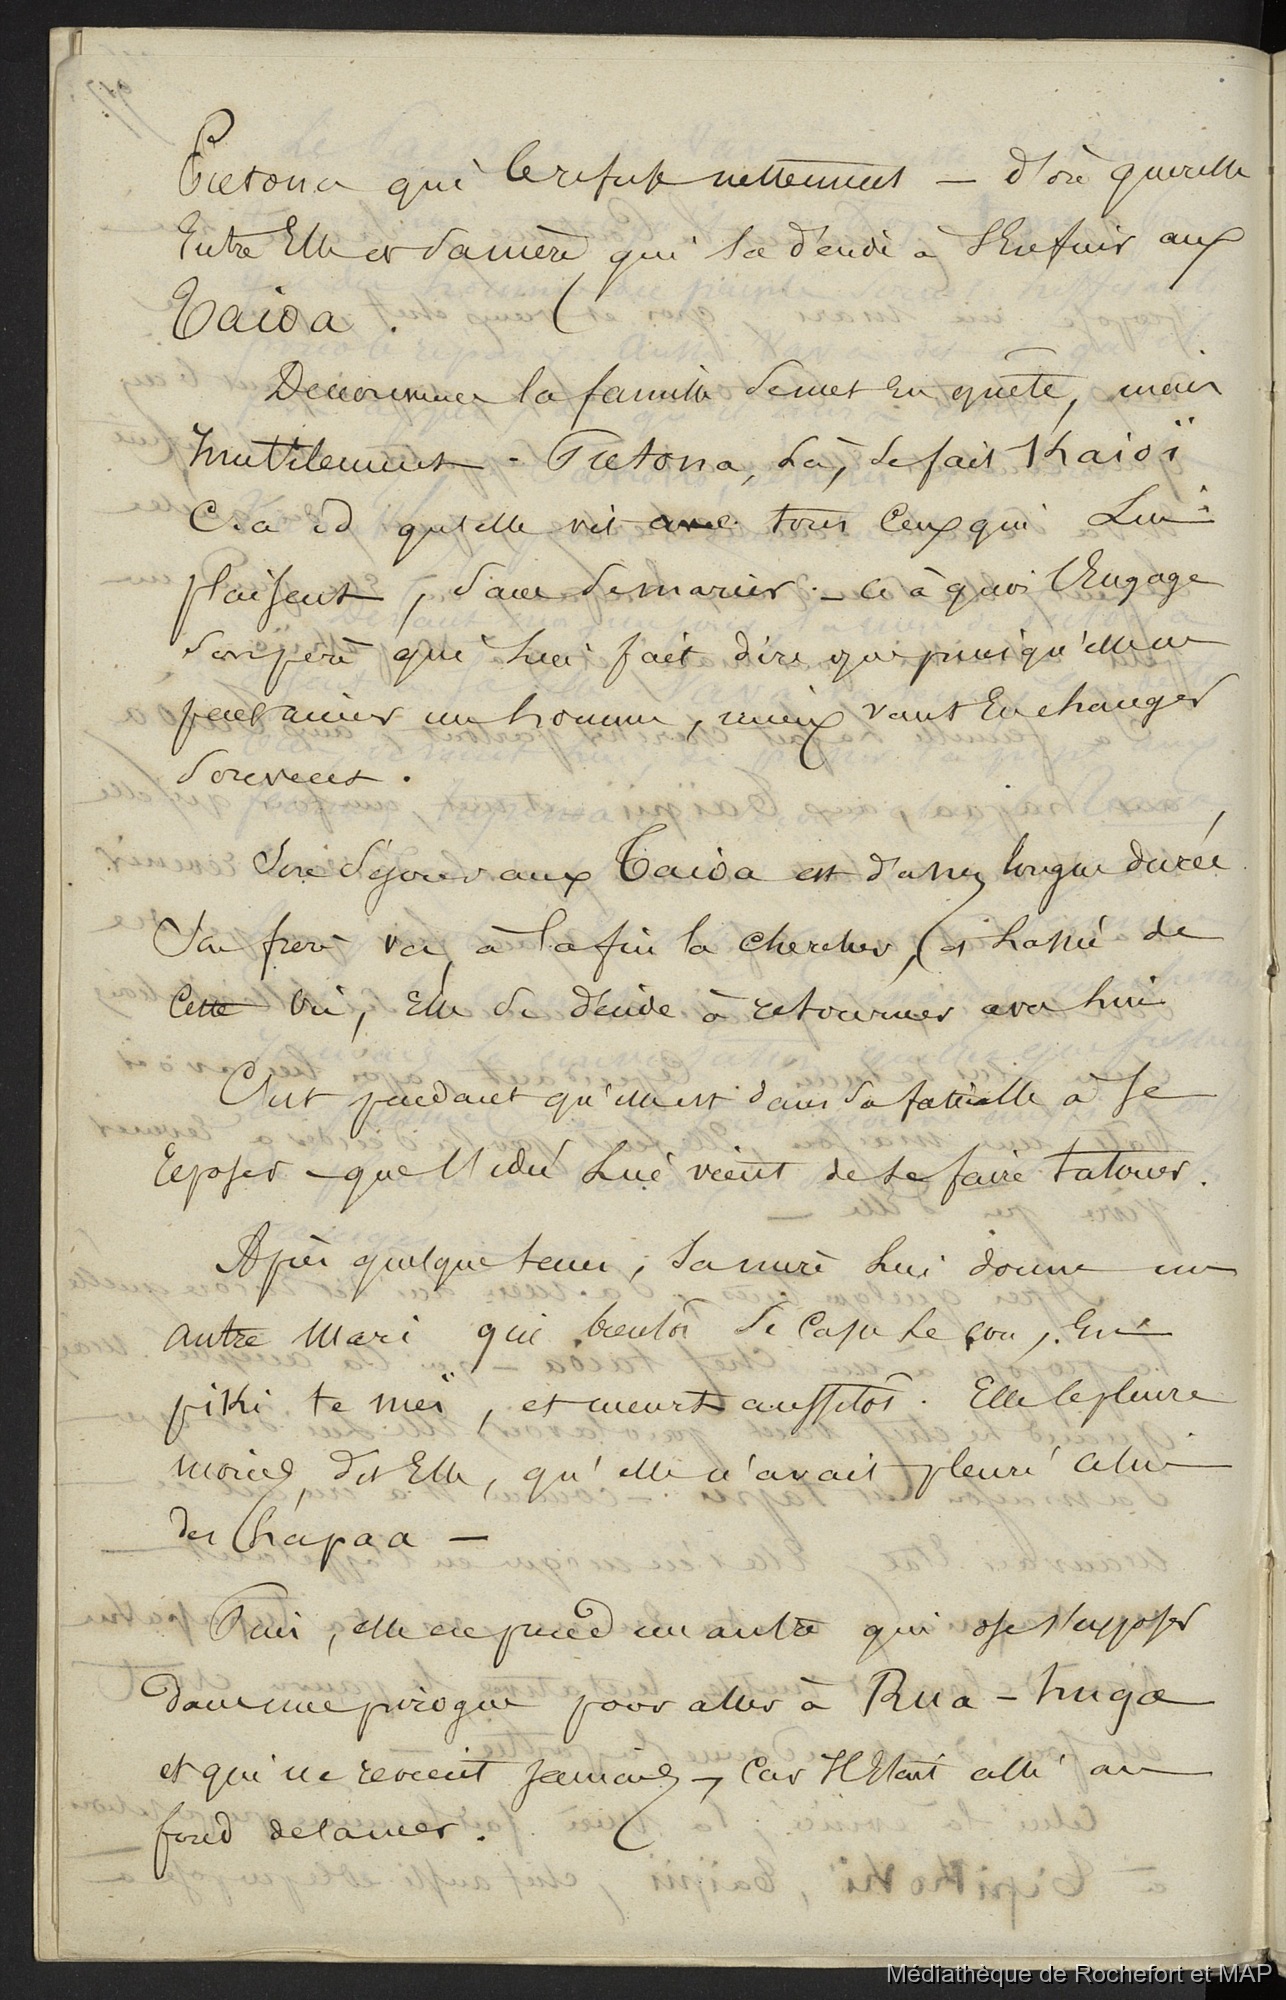 Tretona qui le refuse nettement — d'où querelle
Entre Elle et sa mère qui la décide à s'Enfuir aux
Taioa.
De nouveau la famille se met En quête, mais
Inutilement - Tretona, là, se fait Kaioï
C.a.d qu'elle vit avec tous Ceux qui Lui
plaisent, sans se marier. — Ce à quoi l'Engage
son père qui Lui fait dire que puisqu'elle ne
peut aimer un homme, mieux vaut En changer
souvent.
Son Séjour aux Taioa est d'assez longue durée
Son frère va, à la fin la chercher, et Lassée de
Cette vie, Elle se décide à retourner avec Lui
C'est pendant qu'elle est dans sa famille à se
reposer — que l'idée Lui vient de se faire tatouer.
Après quelque tems, sa mère Lui donne un
autre Mari qui bientôt se casse le cou, En
piki te meï, et meurt aussitôt. Elle le pleure
moins, dit Elle, qu'elle n'avait pleuré Celui
des hapaa —
Puis, elle en prend un autre qui ose s'exposer
dans une pirogue pour aller à Rua-huga
et qui ne revient jamais, Car Il Etait allé au
fond de la mer.
Médiathèque de Rochefort et MAP